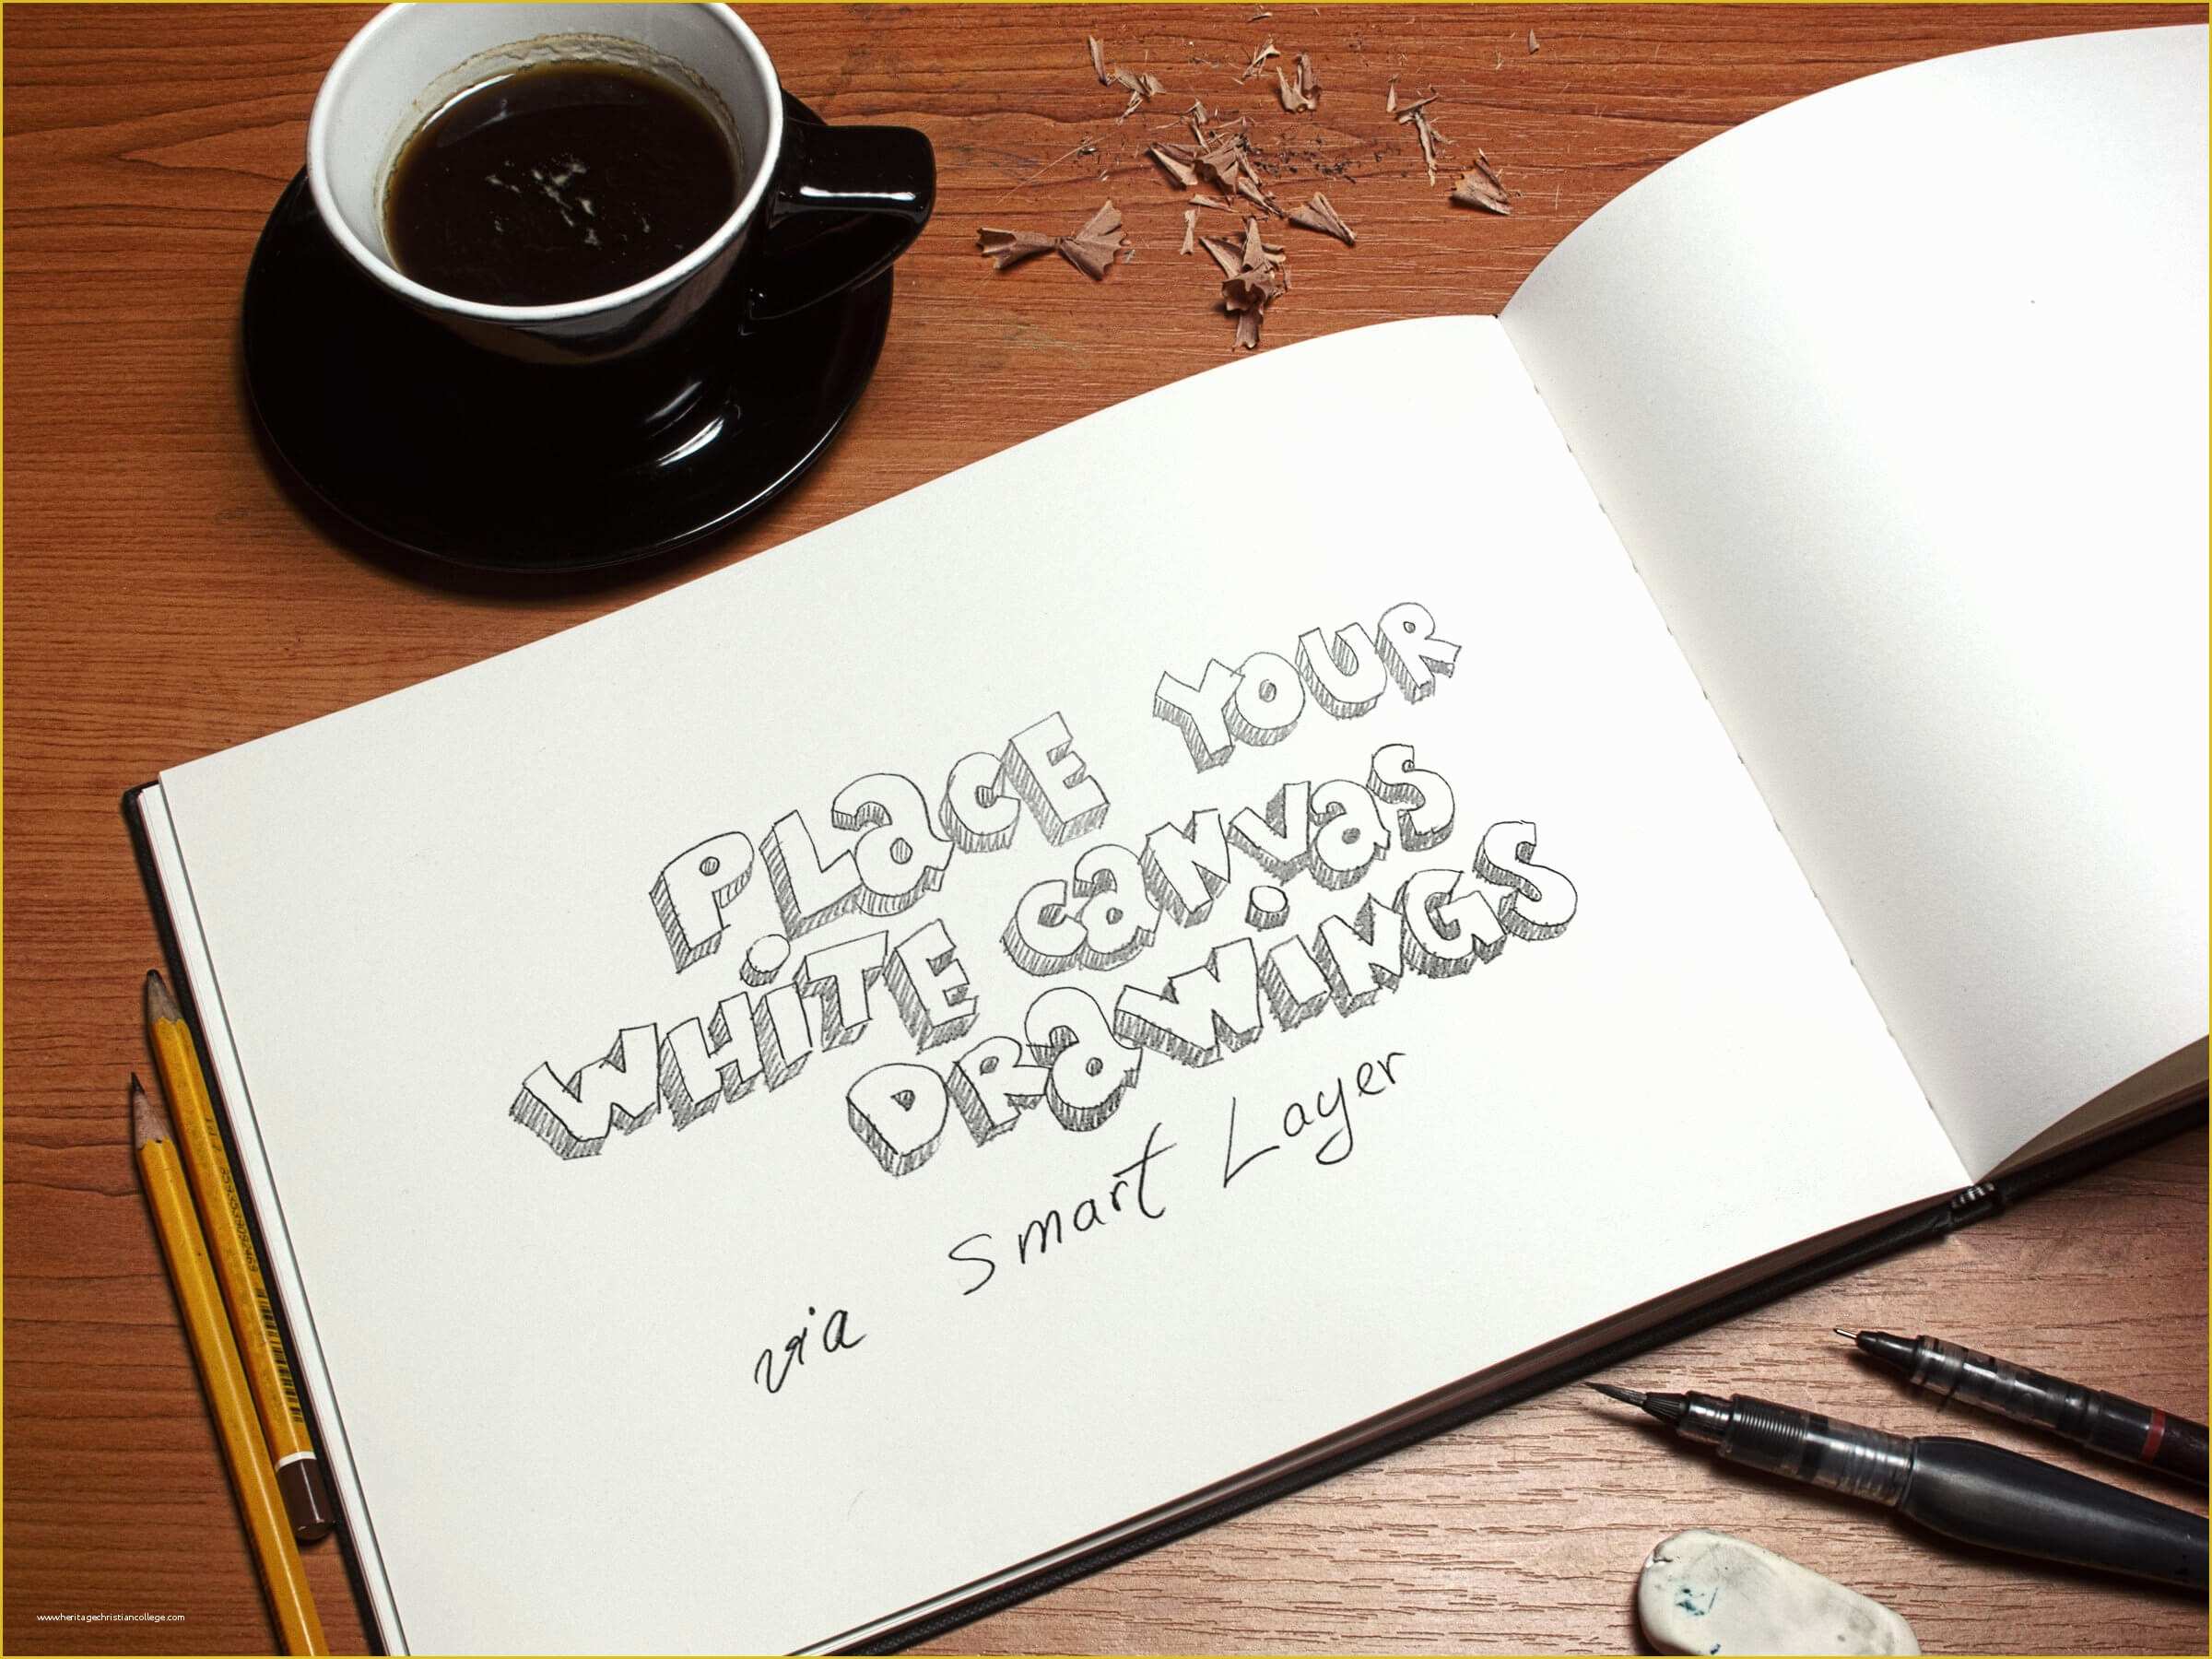 PLaCE YOUR
WHiTE CaNVaS
DRaWiNGS
via Smart Layer
www.heritagechristiancollege.com